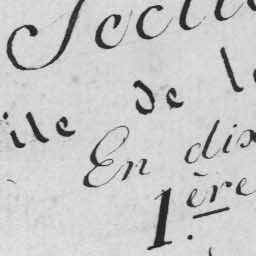 Secti
ile de l
En dix
1.ère